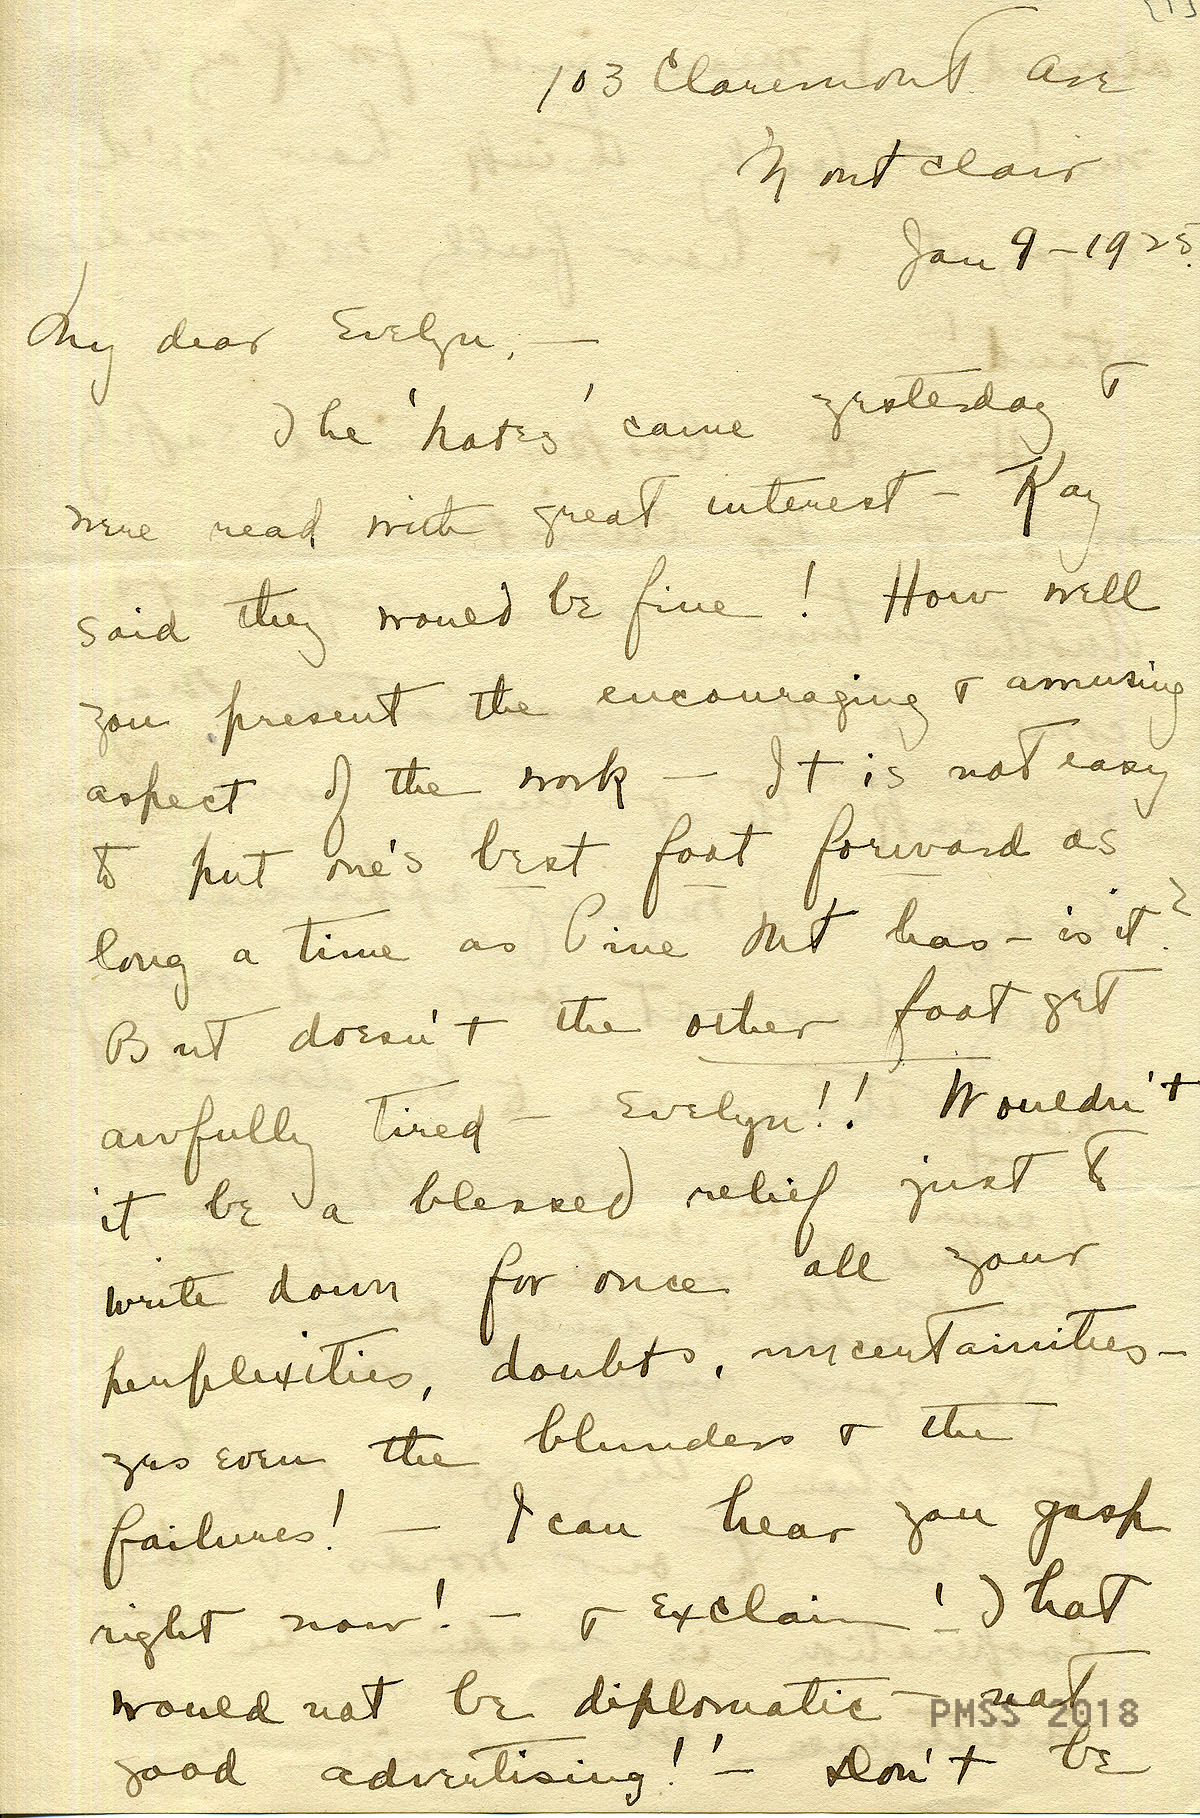 103 Claremont Ave
Montclair
Jan 9 - 1925.
My dear Evelyn, —
The 'Notes' came yesterday &
were read with great interest - Kay
said they would be fine! How well
you present the encouraging & amusing
aspect of the work — It is not easy
to put one's best foot forward as
long a time as Pine Mt has - is it?
But doesn't the other foot get
awfully tired - Evelyn!! Wouldn't
it be a blessed relief just to
write down for once all your
perplexities, doubts, uncertainities -
yes even the blunders & the
failures! — I can hear you gasp
right now! - & exclaim '! That
would not be diplomatic - not
good advertising!'— Don't be
PMSS 2018